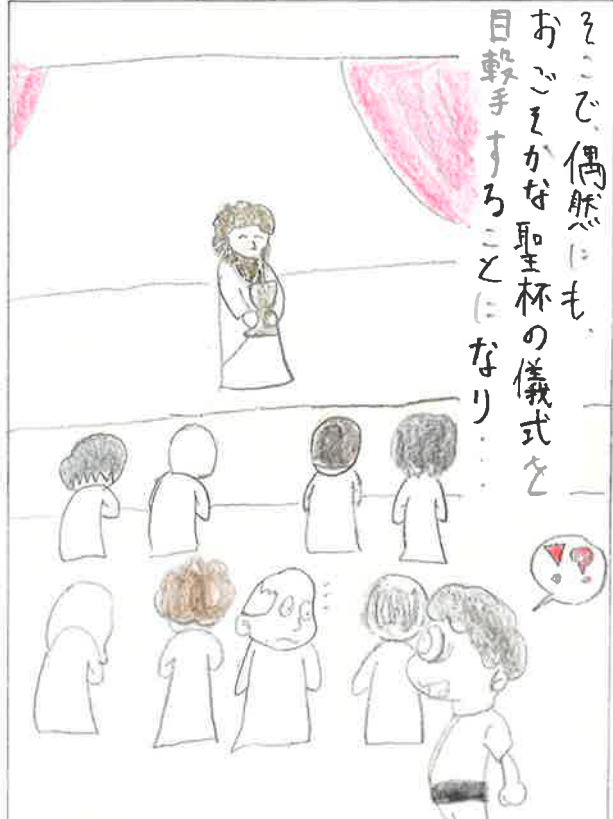 そこで、偶然にも、
おごそかな聖杯の儀式を
目撃することになり‥‥
!?